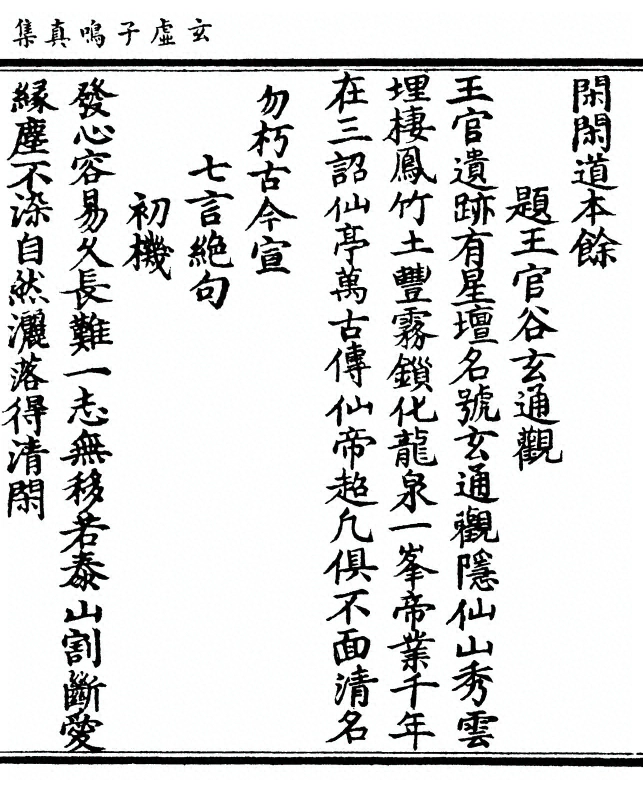 玄虛子鳴真集
閑閑道本餘
題王官谷玄通觀
王官遺跡有星壇名號玄通觀隱仙山秀雲
埋棲鳳竹土豐霧鎖化龍泉一峯帝業千年
在三詔仙亭萬古傳仙帝超凡俱不面清名
勿朽古今宣
七言絕句
初機
發心容易久長難一志無移若泰山割斷愛
緣塵不染自然灑落得清閑